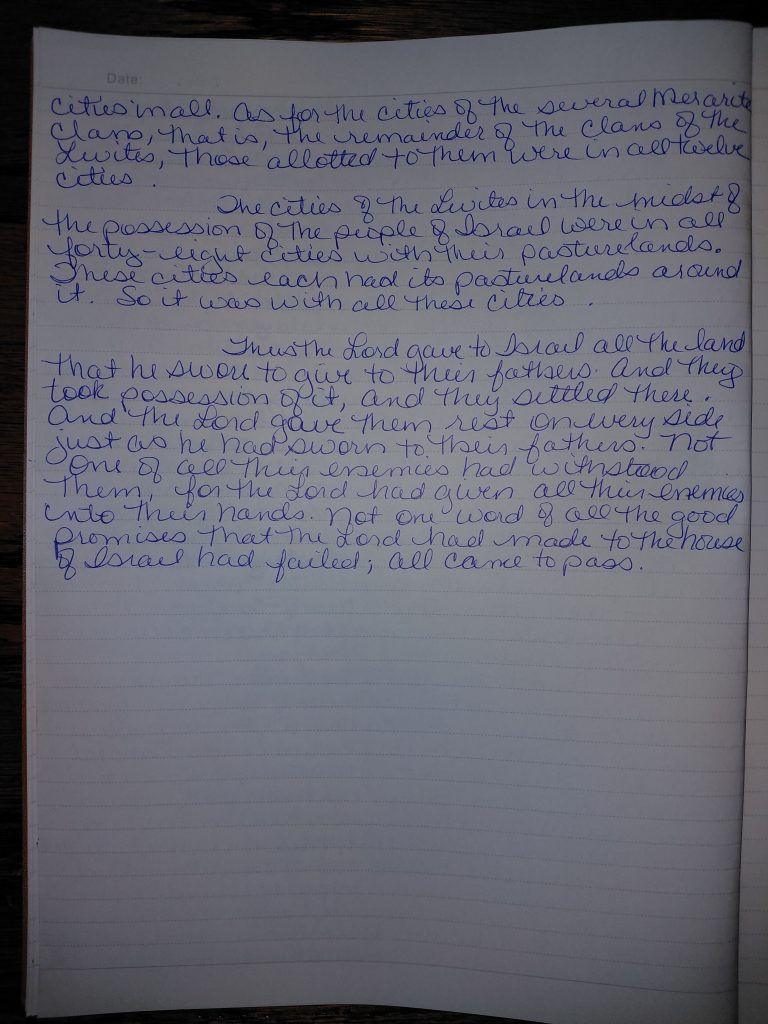 Date:
cities in all. As for the cities of the several Merarite
Clans, that is, the remainder of the Clans of the
Levites, those allotted to them were in all twelve
cities.
The cities of the Levites in the midst of
the possession of the people of Israel were in all
forty-eight cities with their pasturelands.
These cities each had its pasturelands around
it. So it was with all these cities.
Thus the Lord gave to Israel all the land
that he swore to give to their fathers. And they
took possession of it, and they settled there.
And the Lord gave them rest on every side
just as he had sworn to their fathers. Not
one of all their enemies had withstood
them, for the Lord had given all their enemies
into their hands. Not one word of all the good
promises that the Lord had made to the house
of Israel had failed; all came to pass.